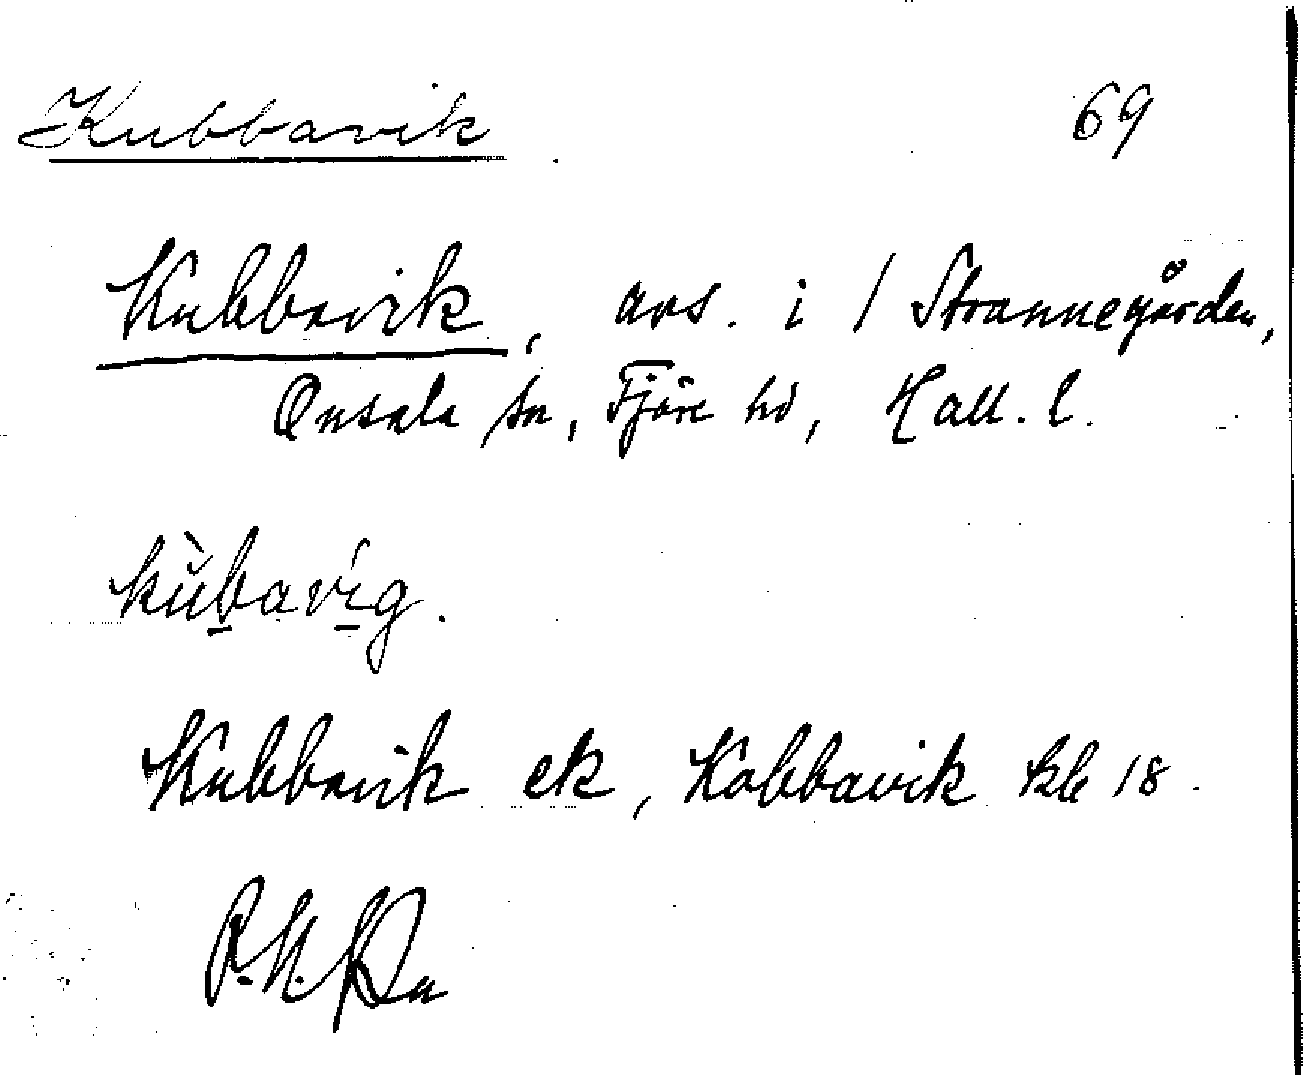 Kubbavik 69
Kubbavik, avs. i 1 Strannegården,
Onsala sn, Fjäre hd, Hall. l.
kùbavíg.
Kubbavik ek, Kobbavik kb 18.